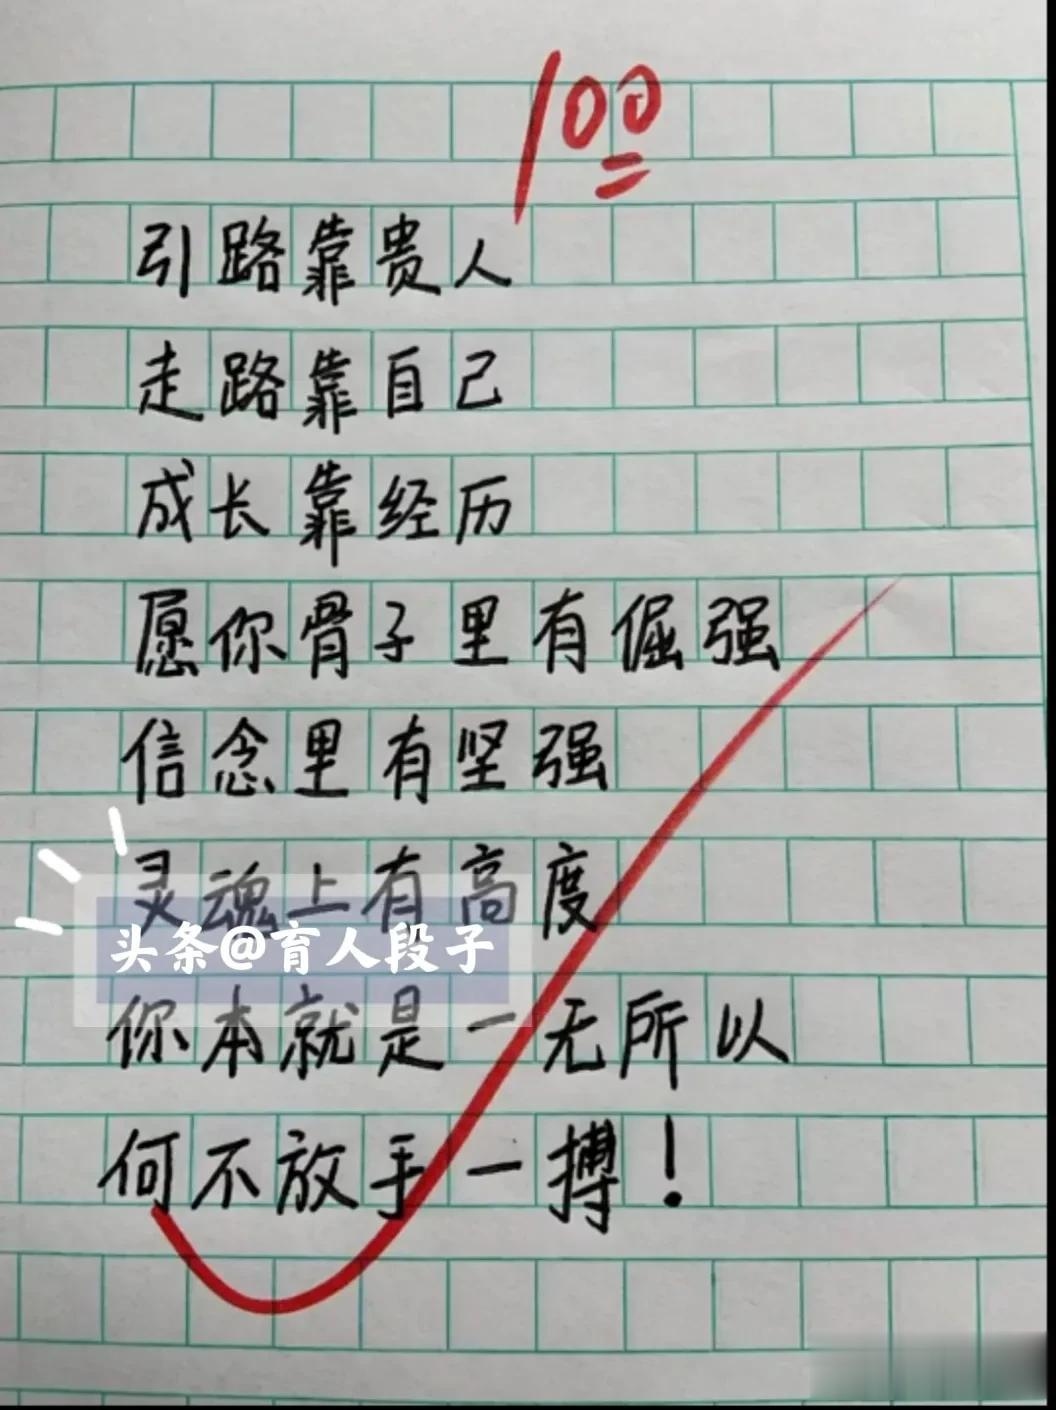 100
引路靠贵人
走路靠自己
成长靠经历
愿你骨子里有倔强
信念里有坚强
灵魂上有高度
头条@育人段子
你本就是一无所以
何不放手一搏！